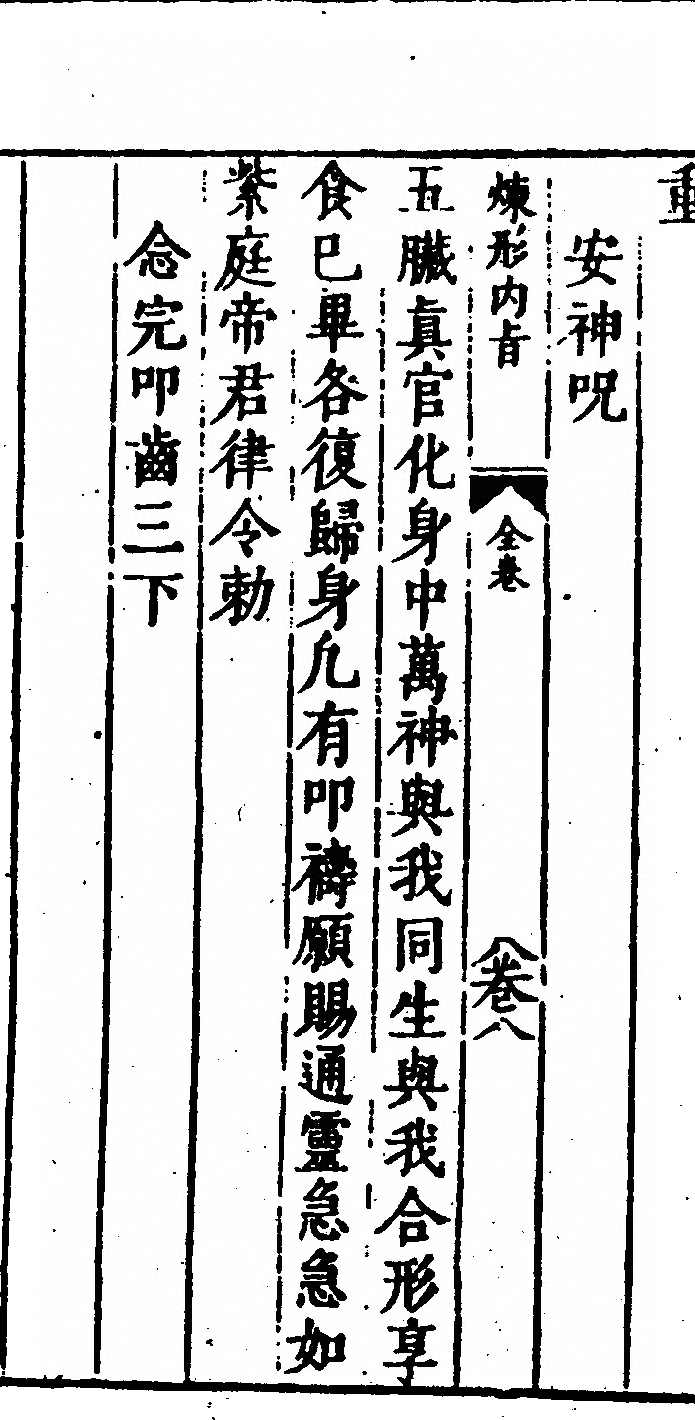 安神呪
煉形内旨 全卷 卷八
五臟眞官化身中萬神與我同生與我合形享
食巳畢各復歸身凢有叩禱願賜通靈急急如
紫庭帝君律令勅
念完叩齒三下